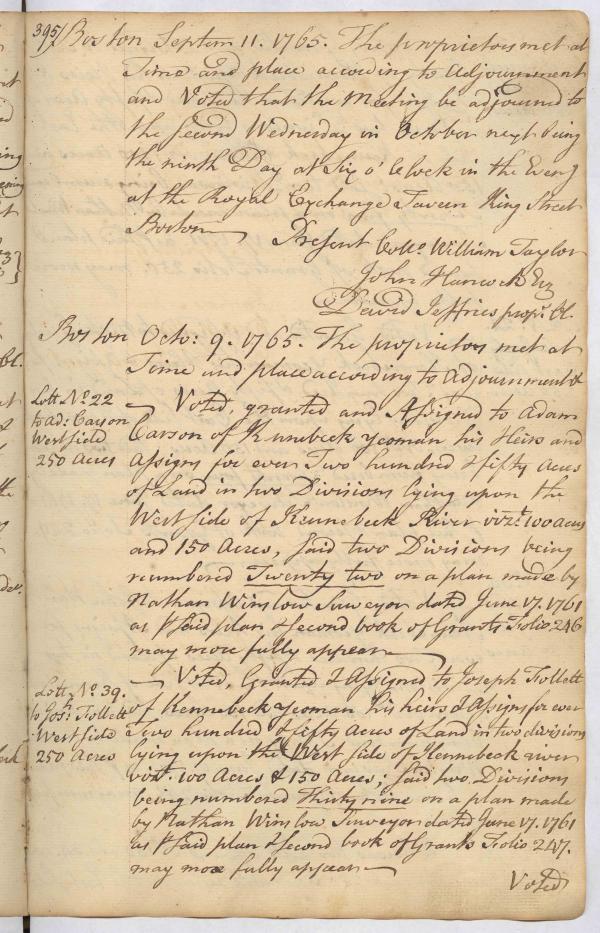 395/ Boston Septem 11. 1765. The proprietors met at
Time and place according to Adjournment
and Voted that the Meeting be adjourned to
the second Wednesday in October next being
the ninth Day at Six o'Clock in the Eveng
at the Royal Exchange Tavern King Street
Boston
Present Collo William Taylor
John Hancock Esq
David Jeffries propr. Cl.
Boston Octo: 9. 1765. The proprietors met at
Time and place according to Adjournment &
Lott No. 22
to Ad: Carson
West field
250 Acres
Voted, granted and Assigned to Adam
Carson of Kennebeck yeoman his Heirs and
Assigns for ever Two hundred & fifty Acres
of Land in two Divisions lying upon the
West side of Kennebeck River vizt. 100 Acres
and 150 Acres, Said two Divisions being
numbered Twenty two on a plan made by
Nathan Winslow Surveyor dated June 17. 1761
as p said plan & second book of Grants Folio 246
may more fully appear
Lott No. 39.
to Jos: Follett
West side
250 Acres
Voted, Granted & Assigned to Joseph Follett
of Kennebeck yeoman his heirs & Assigns for ever
Two hundred & fifty Acres of Land in two divisions
lying upon the West side of Kennebeck river
vizt. 100 Acres & 150 Acres; said two Divisions
being numbered Thirty nine on a plan made
by Nathan Winslow Surveyor dated June 17. 1761
as p said plan & second book of Grants Folio 247.
may more fully appear
Voted